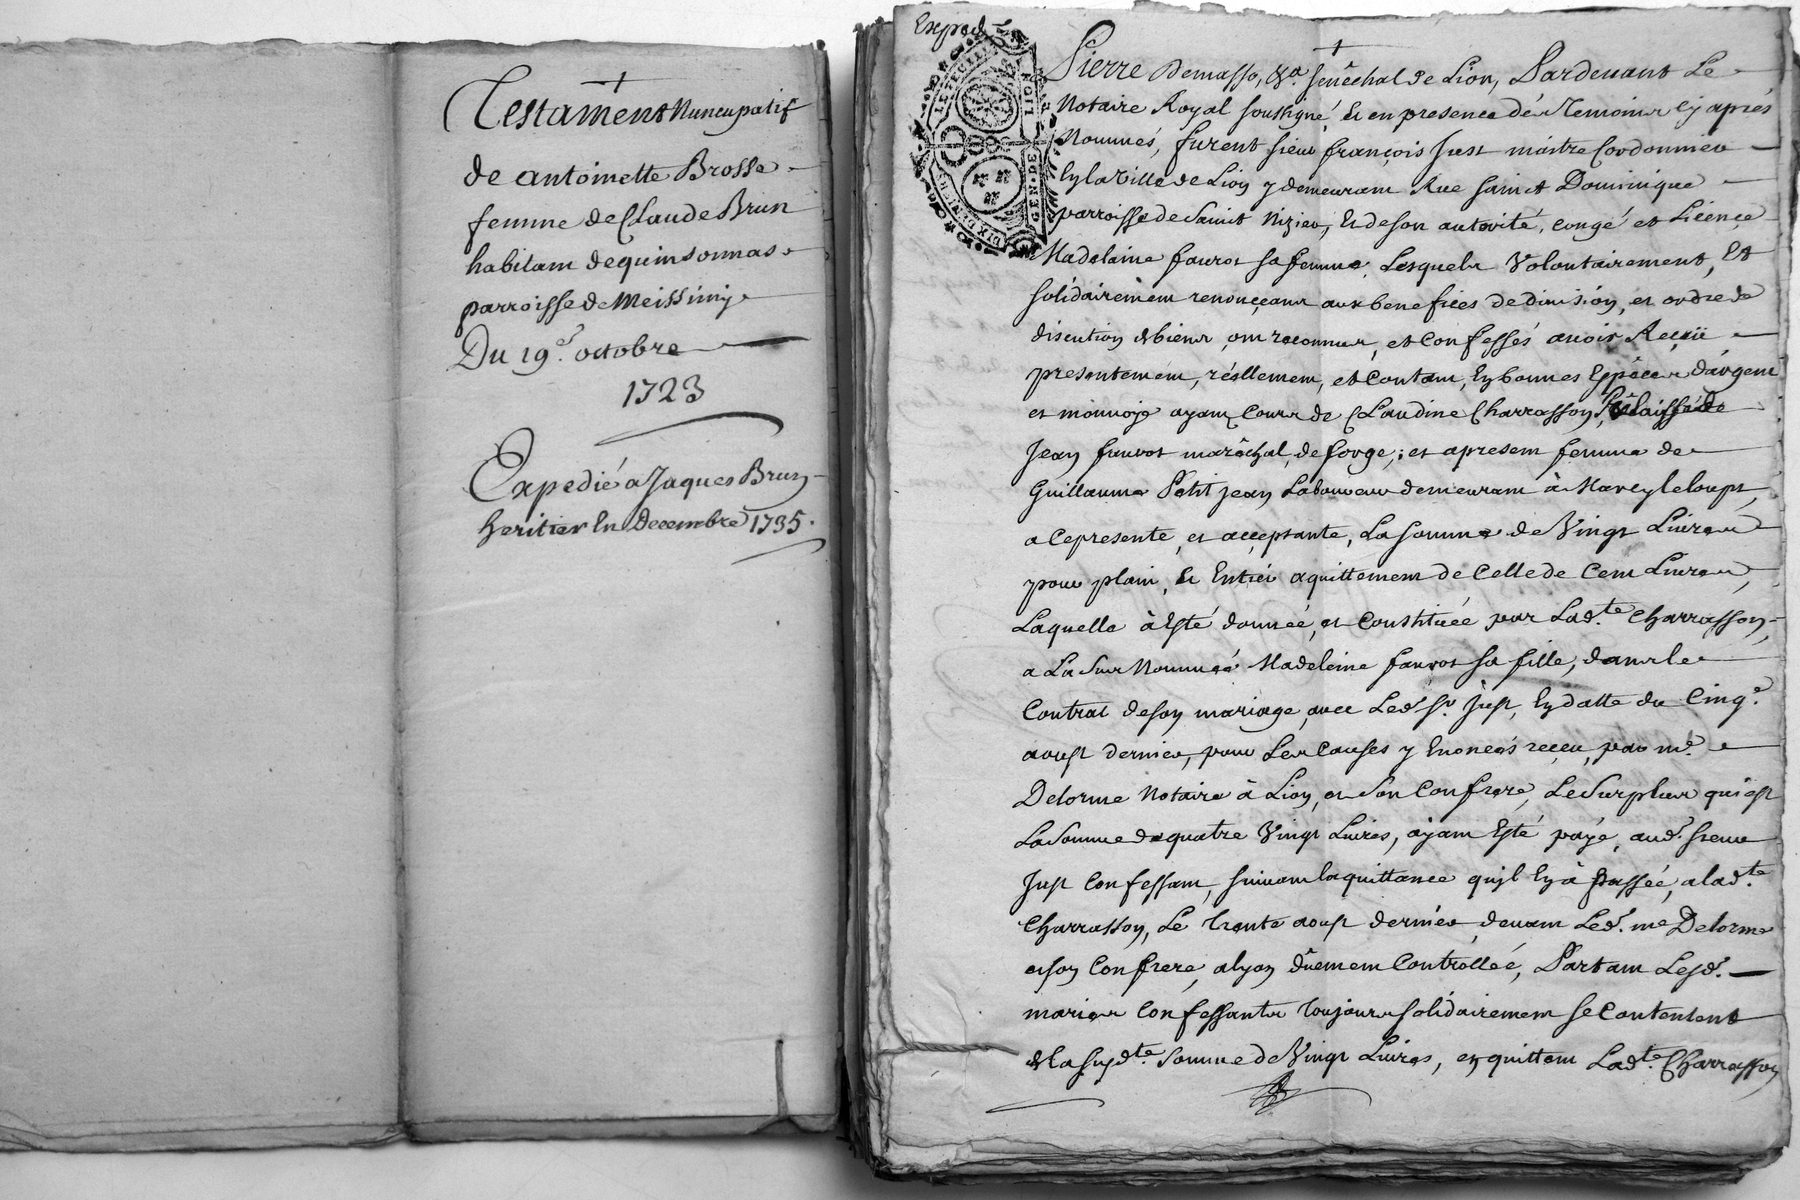 Testament Nuncupatif
de antoinette Brosse
femme de Claude Brun
habitant de quinsonnas
parroisse de Meissimy
Du 19e. octobre
1723
Expedié a Jaques Brun
heritier En decembre 1735.
Exped.
GEN. DE LION
DIX DENIERS
Pierre Demasso, &a. senêchal de Lion, Pardevant Le
Notaire Royal soussigné, et en presence dés Temoins Cy aprés
Nommés, furent sieur françois Just maitre Cordonnier
En la Ville de Lion y demeurant Rue sainct Dominique
parroisse de Sainct Nizier, et de son autorité, congé et Licence
Madelaine fauvot sa femme, Lesquels Volontairement, Et
solidairement renonçeant aux benefices de division, et ordre de
discution de biens, ont reconnus, et Confessés avoir Reçeü
presentement, réellement, et Contant, En bonnes Espéces d'argent
et monnoje ayant Cours de Claudine Charrasson, Relaissée de
Jean fauvot maréchal, de forge, et apresent femme de
Guillaume Petit jean Laboureur demeurant à Marcy le loup,
a Ce presente, et acçeptante, La somme de Vingt Livres
pour plain, Et Entier aquittement de Celle de Cent Livres,
Laquelle à Esté donnée, et Constituée par Lad.te Charrasson,
a La sus Nommée Madeleine fauvot sa fille, dans le
Contrat de son mariage, avec Led. sr. Just, En datte du Cinq.e
aoust dernier, pour Les Causes y Enoncés reçeu, par me.
Delorme Notaire à Lion, et Son Confrere, Le Surplus qu'est
La somme de quatre Vingt Livres, ayant Esté payé, aud. sieur
Just Confessant, suivant la quittance qu'jl En à passée, a lad.te
Charrasson, Le trente aoust dernier, devant Led. me Delorme
et son Confrere, a lyon dûement Controllée, Partant Lesd.
mariés Confessants toujours solidairement se Contentent
de la susd.te Somme de Vingt Livres, en quittent Lad.te Charrasson